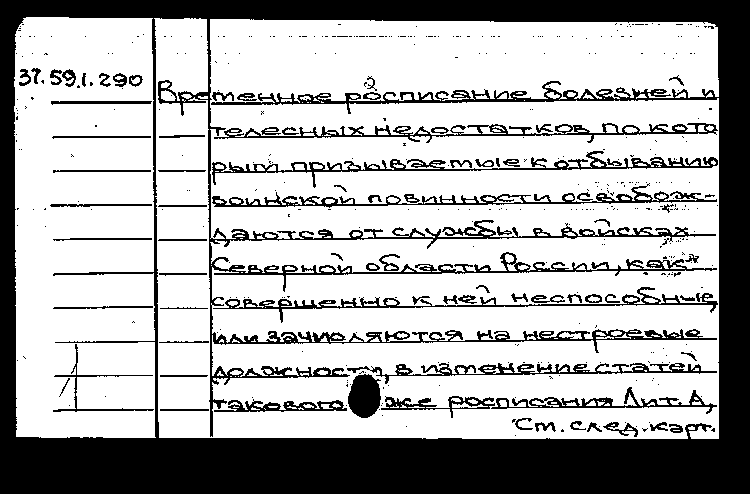 37.59.1.290
Временное росписание болезней и
телесных недостатков, по кото
рым призываемые к отбыванию
воинской повинности освобож-
даются от службы в войсках
Северной области России, как
совершенно к ней неспособные,
или зачисляются на нестроевые
должности, в изменение статей
такового же росписания Лит. А,
См. след. карт.